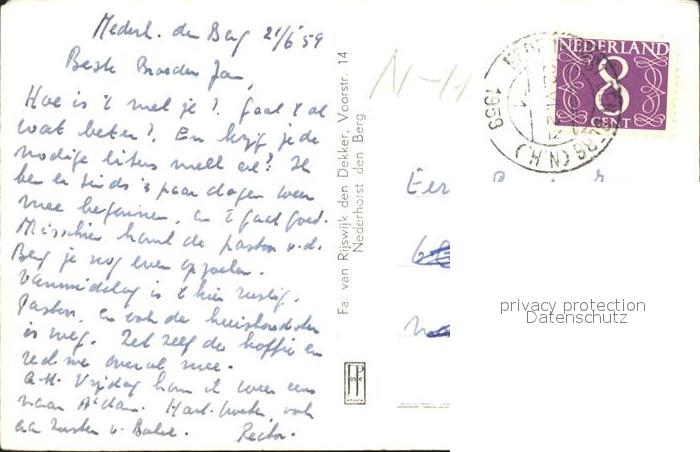 Nederh. den Berg 21/6 59
Beste Broeder Jan,
Hoe is 't met je? Gaat 't al
wat beter? En krijg je de
nodige liters melk al? Ik
ben er sinds 'n paar dagen weer
mee begonnen, en 't gaat goed.
Misschien komt de pastoor v. d.
Berg je nog even opzoeken.
Vanmiddag is 't hier rustig.
Pastoor, en ook de huishoudster
is weg. Zet zelf de koffie en
red me overal mee.
a.s. Vrijdag kom ik weer eens
naar A'dam. Hart. groeten, ook
aan zuster v. Rector.
Fa. van Rijswijk den Dekker, Voorstr. 14
Nederhorst den Berg
N-H
NEDERLAND
8
CENT
1959
BERG (N.H.)
Eer
privacy protection
Datenschutz